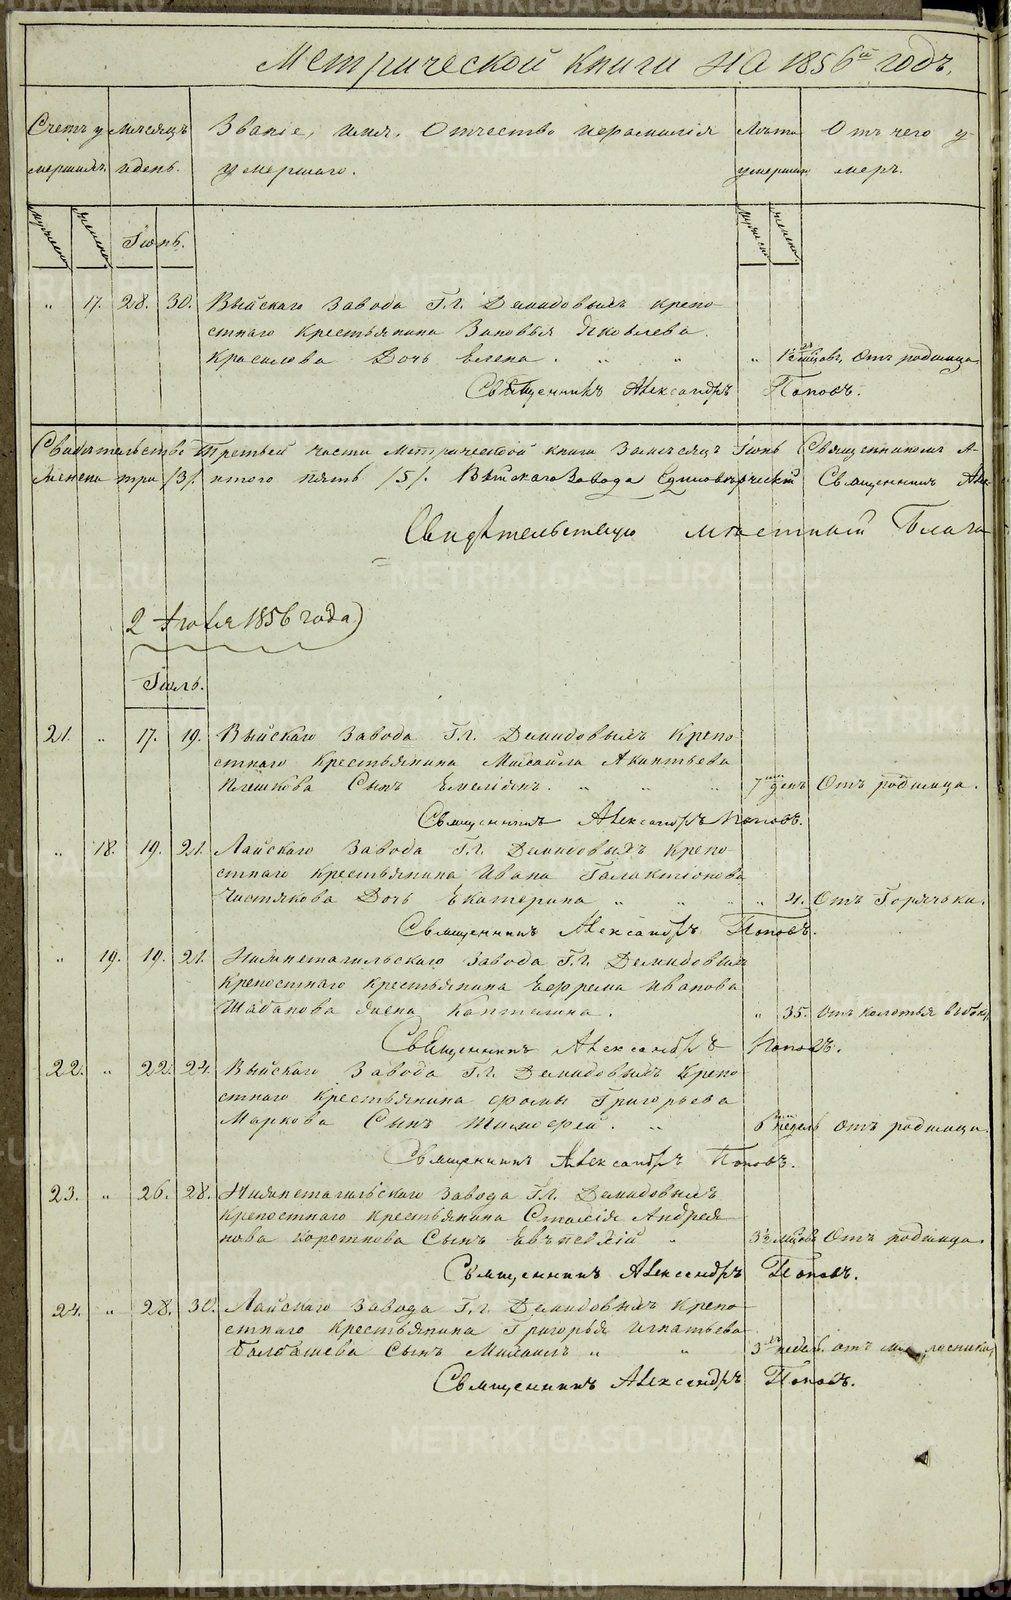 Метрической книги на 1856й годъ.
Счетъ у Мѣсяцъ Званіе, имя, Отчество и фамилія Лѣта Отъ чего у
мершихъ. и день. умершаго. умершаго меръ.
мужеска женска Іюнь. мужеска женска
" 17. 28. 30. Выйскаго Завода Г.г. Демидовыхъ крепо
стнаго крестьянина Зиновья Яковлева
Красилова Дочь Елена. " " " мѣсцовъ, Отъ родимца.
Священникъ Александръ Поповъ.
Свидѣтельство третьей части Метрической книги За мѣсяцъ Іюнь Священникомъ А-
женска три /3/. итого пять /5/. Выйскаго Завода Единовѣрческій Священникъ Але
Свидѣтельствую мѣстный Благо
2 Іюля 1856 года)
Іюль.
21. " 17. 19. Выйскаго Завода Г.г. Демидовыхъ крепо
стнаго крестьянина Михаила Акинтьева
Плешкова Сынъ Емеліянъ. " " " 7ми день Отъ родимца.
Священникъ Александръ Поповъ.
" 18. 19. 21. Лайскаго Завода Г.г. Демидовыхъ крепо
стнаго крестьянина Ивана Галактіонова
Чистякова Дочь Екатерина " " " " 4. Отъ Горячьки.
Священникъ Александръ Поповъ.
" 19. 19. 21. Нижнетагильскаго Завода Г.г. Демидовыхъ
крепостнаго крестьянина Ефрема Иванова
Шабанова жена Каптелина. " 35. Отъ колотья въ боку
Священникъ Александръ Поповъ.
22. " 22. 24. Выйскаго Завода Г.г. Демидовыхъ крепо
стнаго крестьянина Фомы Григорьева
Маркова Сынъ Тимофей. " 6ти недель Отъ родимца.
Священникъ Александръ Поповъ.
23. " 26. 28. Нижнетагильскаго Завода Г.г. Демидовыхъ
крепостнаго крестьянина Стахія Андрея
нова короткова Сынъ Евъпсвхій " 3хъ мѣсцовъ Отъ родимца.
Священникъ Александръ Поповъ.
24. " 28. 30. Лайскаго Завода Г.г. Демидовыхъ крепо
стнаго крестьянина Григорья Игнатьева
Балбашева Сынъ Михаилъ " " 3хъ недель. отъ
Священникъ Александръ Поповъ.
METRIKI.GASO-URAL.RU